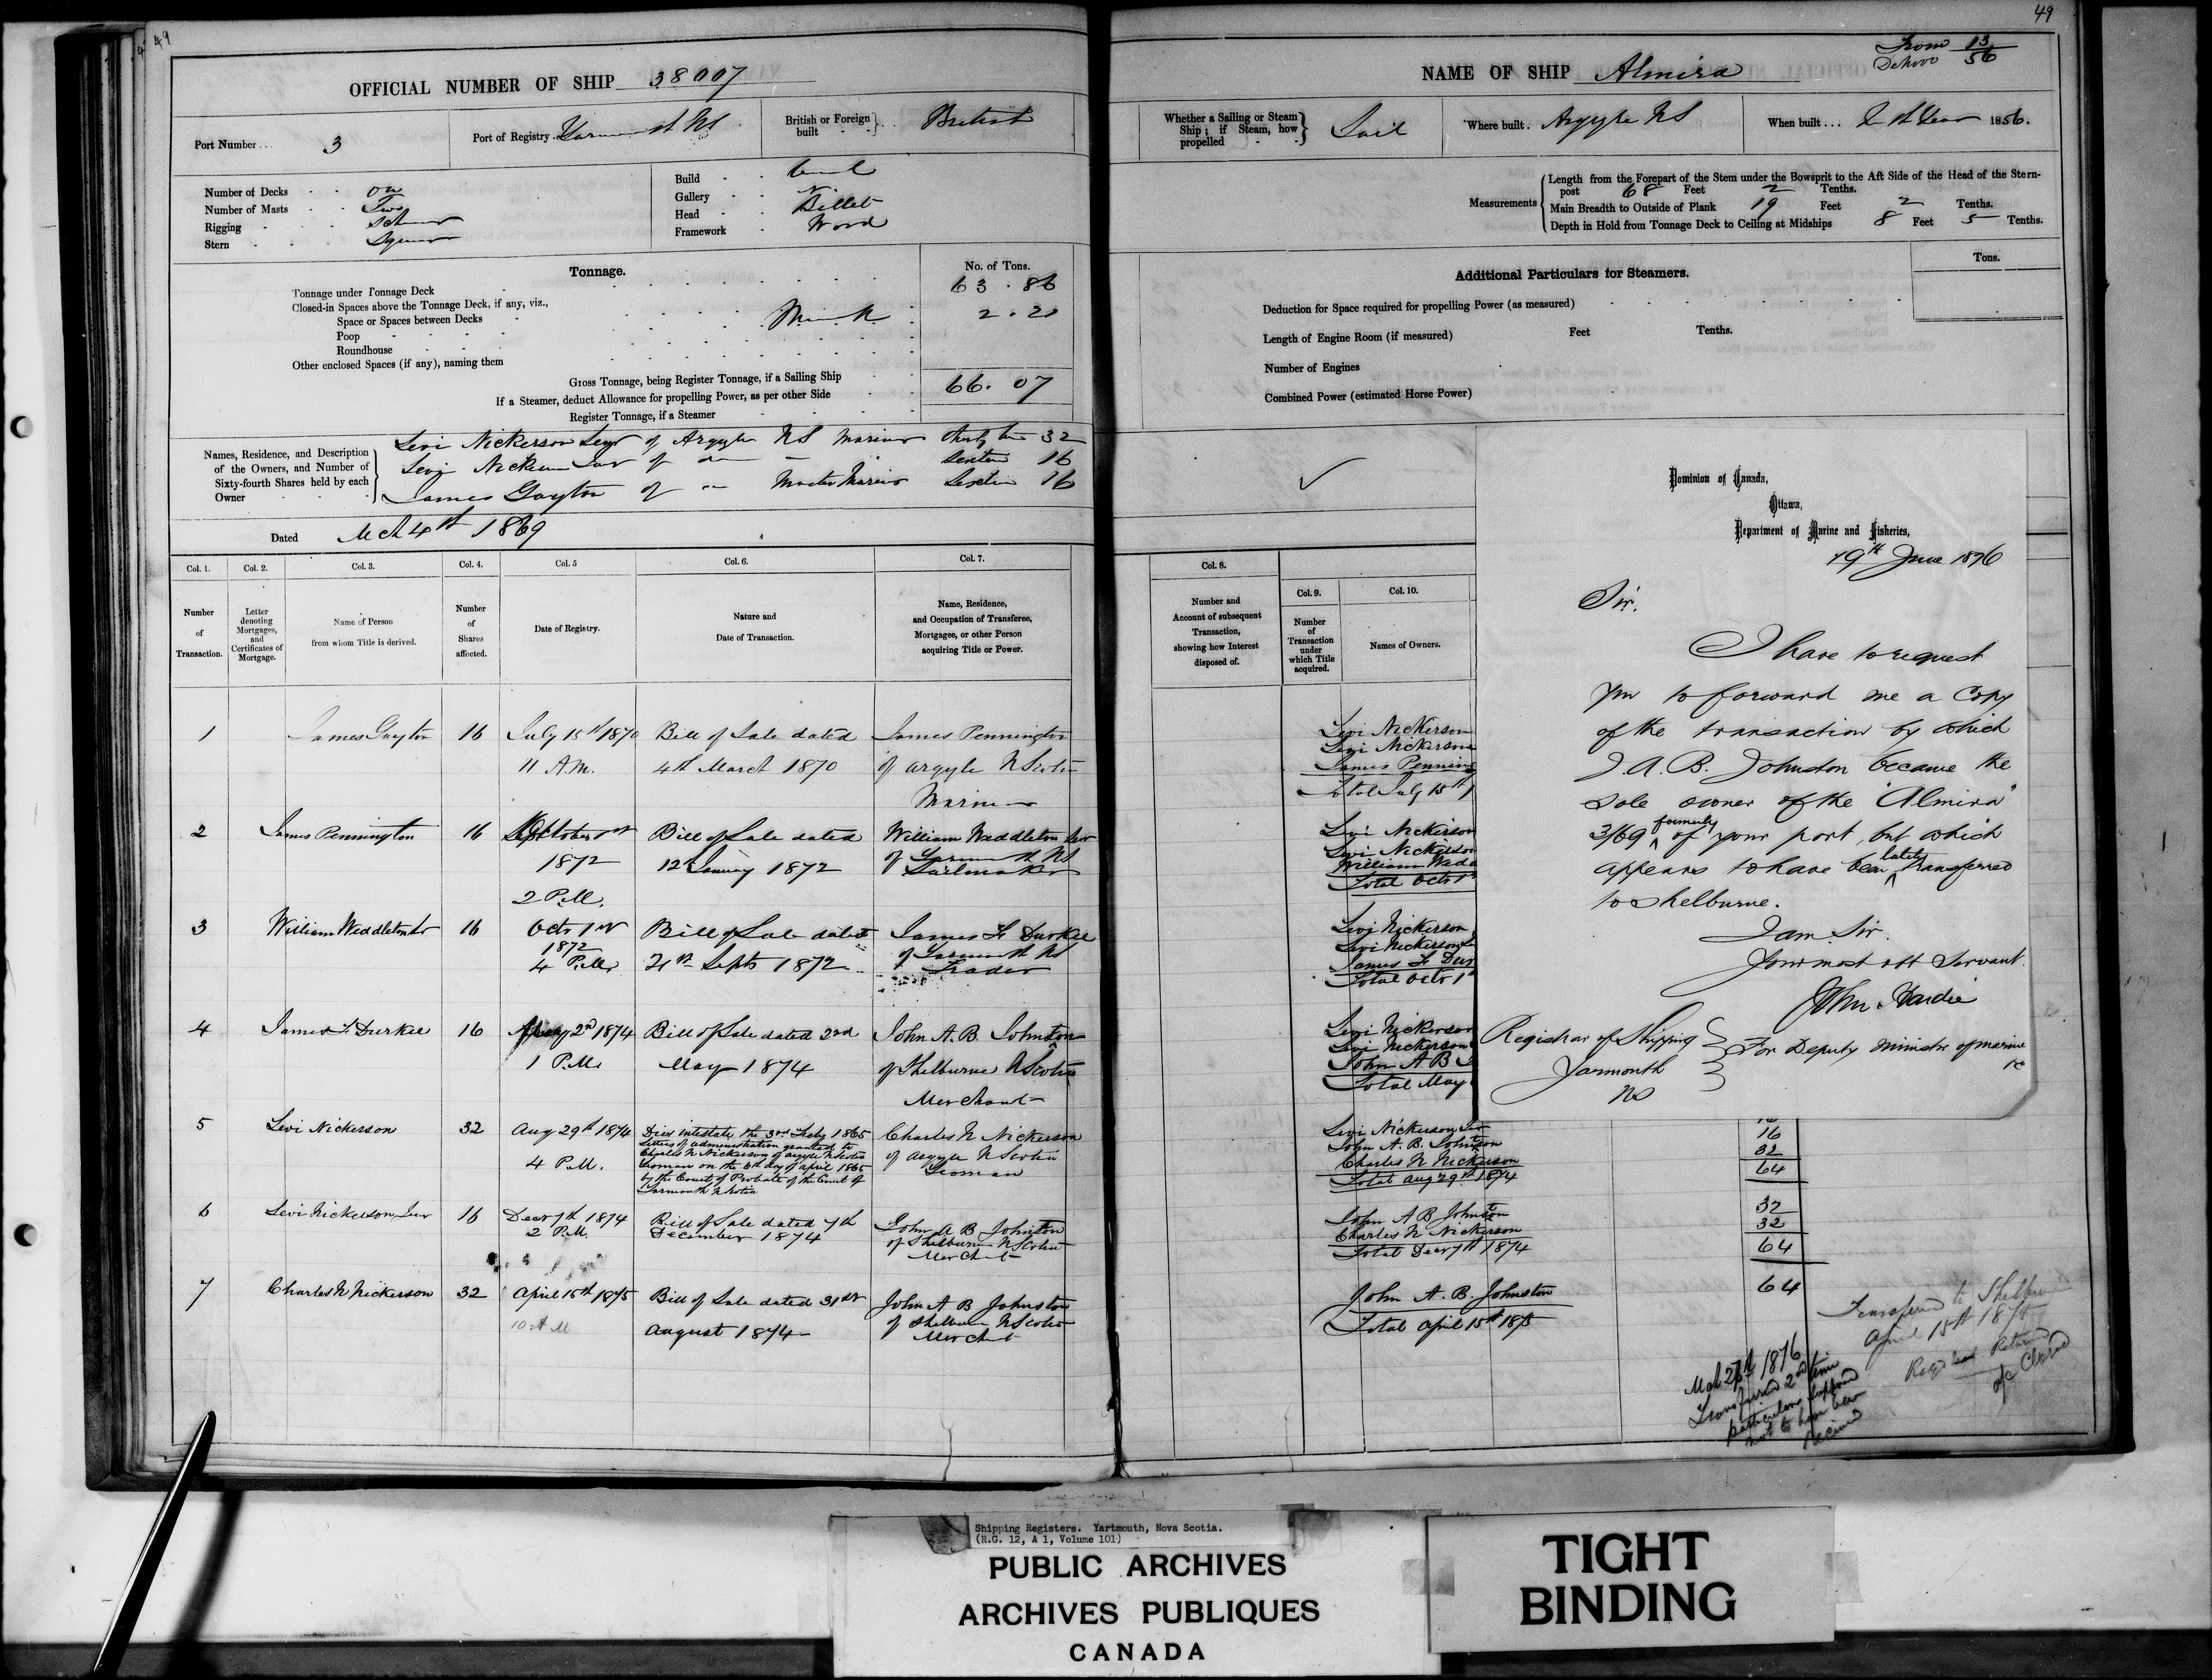 49
OFFICIAL NUMBER OF SHIP 38007
Port Number... 3
Port of Registry. Yarmouth NS
British or Foreign built British
Number of Decks
Number of Masts Two
Rigging
Stern
Build
Gallery
Head Billet
Framework Wood
Tonnage. No. of Tons.
Tonnage under Tonnage Deck 63.86
Closed-in Spaces above the Tonnage Deck, if any, viz.,
Space or Spaces between Decks
Poop
Roundhouse
Other enclosed Spaces (if any), naming them
Gross Tonnage, being Register Tonnage, if a Sailing Ship 66.07
If a Steamer, deduct Allowance for propelling Power, as per other Side
Register Tonnage, if a Steamer
Names, Residence, and Description of the Owners, and Number of Sixty-fourth Shares held by each Owner
Levi Nickerson Senr of Argyle NS Mariner 32
Levi Nickerson Junr of do 16
James Gayton of do Master Mariner Sixteen 16
Dated Mch 4th 1869
Col. 1. Col. 2. Col. 3. Col. 4. Col. 5 Col. 6. Col. 7.
Number of Transaction.
Letter denoting Mortgages, and Certificates of Mortgage.
Name of Person from whom Title is derived.
Number of Shares affected.
Date of Registry.
Nature and Date of Transaction.
Name, Residence, and Occupation of Transferee, Mortgagee, or other Person acquiring Title or Power.
1 James Gayton 16 July 15th 1870 Bill of Sale dated James Pennington
11 A.M. 4th March 1870 of Argyle N Scotia
Mariner
2 James Pennington 16 October 1st Bill of Sale dated William Waddleton Senr
1872 12 January 1872 of Yarmouth NS
Sailmaker
2 P.M.
3 William Waddleton Sr 16 Octr 1st Bill of Sale dated James F Durkee
1872 of Yarmouth NS
4 P.M. 21st Septr 1872 Trader
4 James F Durkee 16 May 2nd 1874 Bill of Sale dated 2nd John A. B. Johnston
1 P.M. May 1874 of Shelburne N Scotia
Merchant
5 Levi Nickerson 32 Aug 29th 1874 Died intestate the 3rd July 1865 Charles N Nickerson
Letters of administration granted to
4 P.M. Charles N Nickerson of Argyle N Scotia of Argyle N Scotia
Yeoman on the 6th day of April 1865 Yeoman
by the Court of Probate of the County of
Yarmouth N Scotia
6 Levi Nickerson Junr 16 Decr 7th 1874 Bill of Sale dated 7th John A B Johnston
2 P.M. December 1874 of Shelburne N Scotia
Merchant
7 Charles N Nickerson 32 April 15th 1875 Bill of Sale dated 31st John A B Johnston
10 A M August 1874 of Shelburne N Scotia
Merchant
49
From 13
56
NAME OF SHIP Almira
Whether a Sailing or Steam Ship; if Steam, how propelled Sail
Where built. Argyle NS
When built... In th Year 1856.
Measurements
Length from the Forepart of the Stem under the Bowsprit to the Aft Side of the Head of the Stern-
post 68 Feet 2 Tenths.
Main Breadth to Outside of Plank 19 Feet 2 Tenths.
Depth in Hold from Tonnage Deck to Ceiling at Midships 8 Feet 5 Tenths.
Additional Particulars for Steamers. Tons.
Deduction for Space required for propelling Power (as measured)
Length of Engine Room (if measured) Feet Tenths.
Number of Engines
Combined Power (estimated Horse Power)
Col. 8. Col. 9. Col. 10.
Number and Account of subsequent Transaction, showing how Interest disposed of.
Number of Transaction under which Title acquired.
Names of Owners.
Levi Nickerson
Levi Nickerson
James Penning
Total July 15th 1
Levi Nickerson
Levi Nickerson
William Wadd
Total Octr 1
Levi Nickerson
Levi Nickerson
James F Dur
Total Octr 1
Levi Nickerson
Levi Nickerson
John A B
Total May
Levi Nickerson Jnr 16
John A. B. Johnston 16
Charles N Nickerson 32
Total Aug 29th 1874 64
John A B Johnston 32
Charles N Nickerson 32
Total Decr 7th 1874 64
John A. B. Johnston 64
Total April 15th 1875
Transferred to Shelburne
April 15th 1875
a/c Closed
Mch 27th 1876
Transferred 2nd time
particulars supposed
not to have been
received
Dominion of Canada,
Ottawa,
Department of Marine and Fisheries,
19th June 1876
Sir,
I have to request
you to forward me a Copy
of the transaction by which
J. A. B. Johnston became the
sole owner of the "Almira"
3/69 formerly of your port, but which
appears to have been lately transferred
to Shelburne.
I am Sir.
Your most obt Servant.
John Hardie
For Deputy Minister of Marine &c
Registrar of Shipping
Yarmouth
NS
Shipping Registers. Yartmouth, Nova Scotia.
(R.G. 12, A 1, Volume 101)
PUBLIC ARCHIVES
ARCHIVES PUBLIQUES
CANADA
TIGHT
BINDING